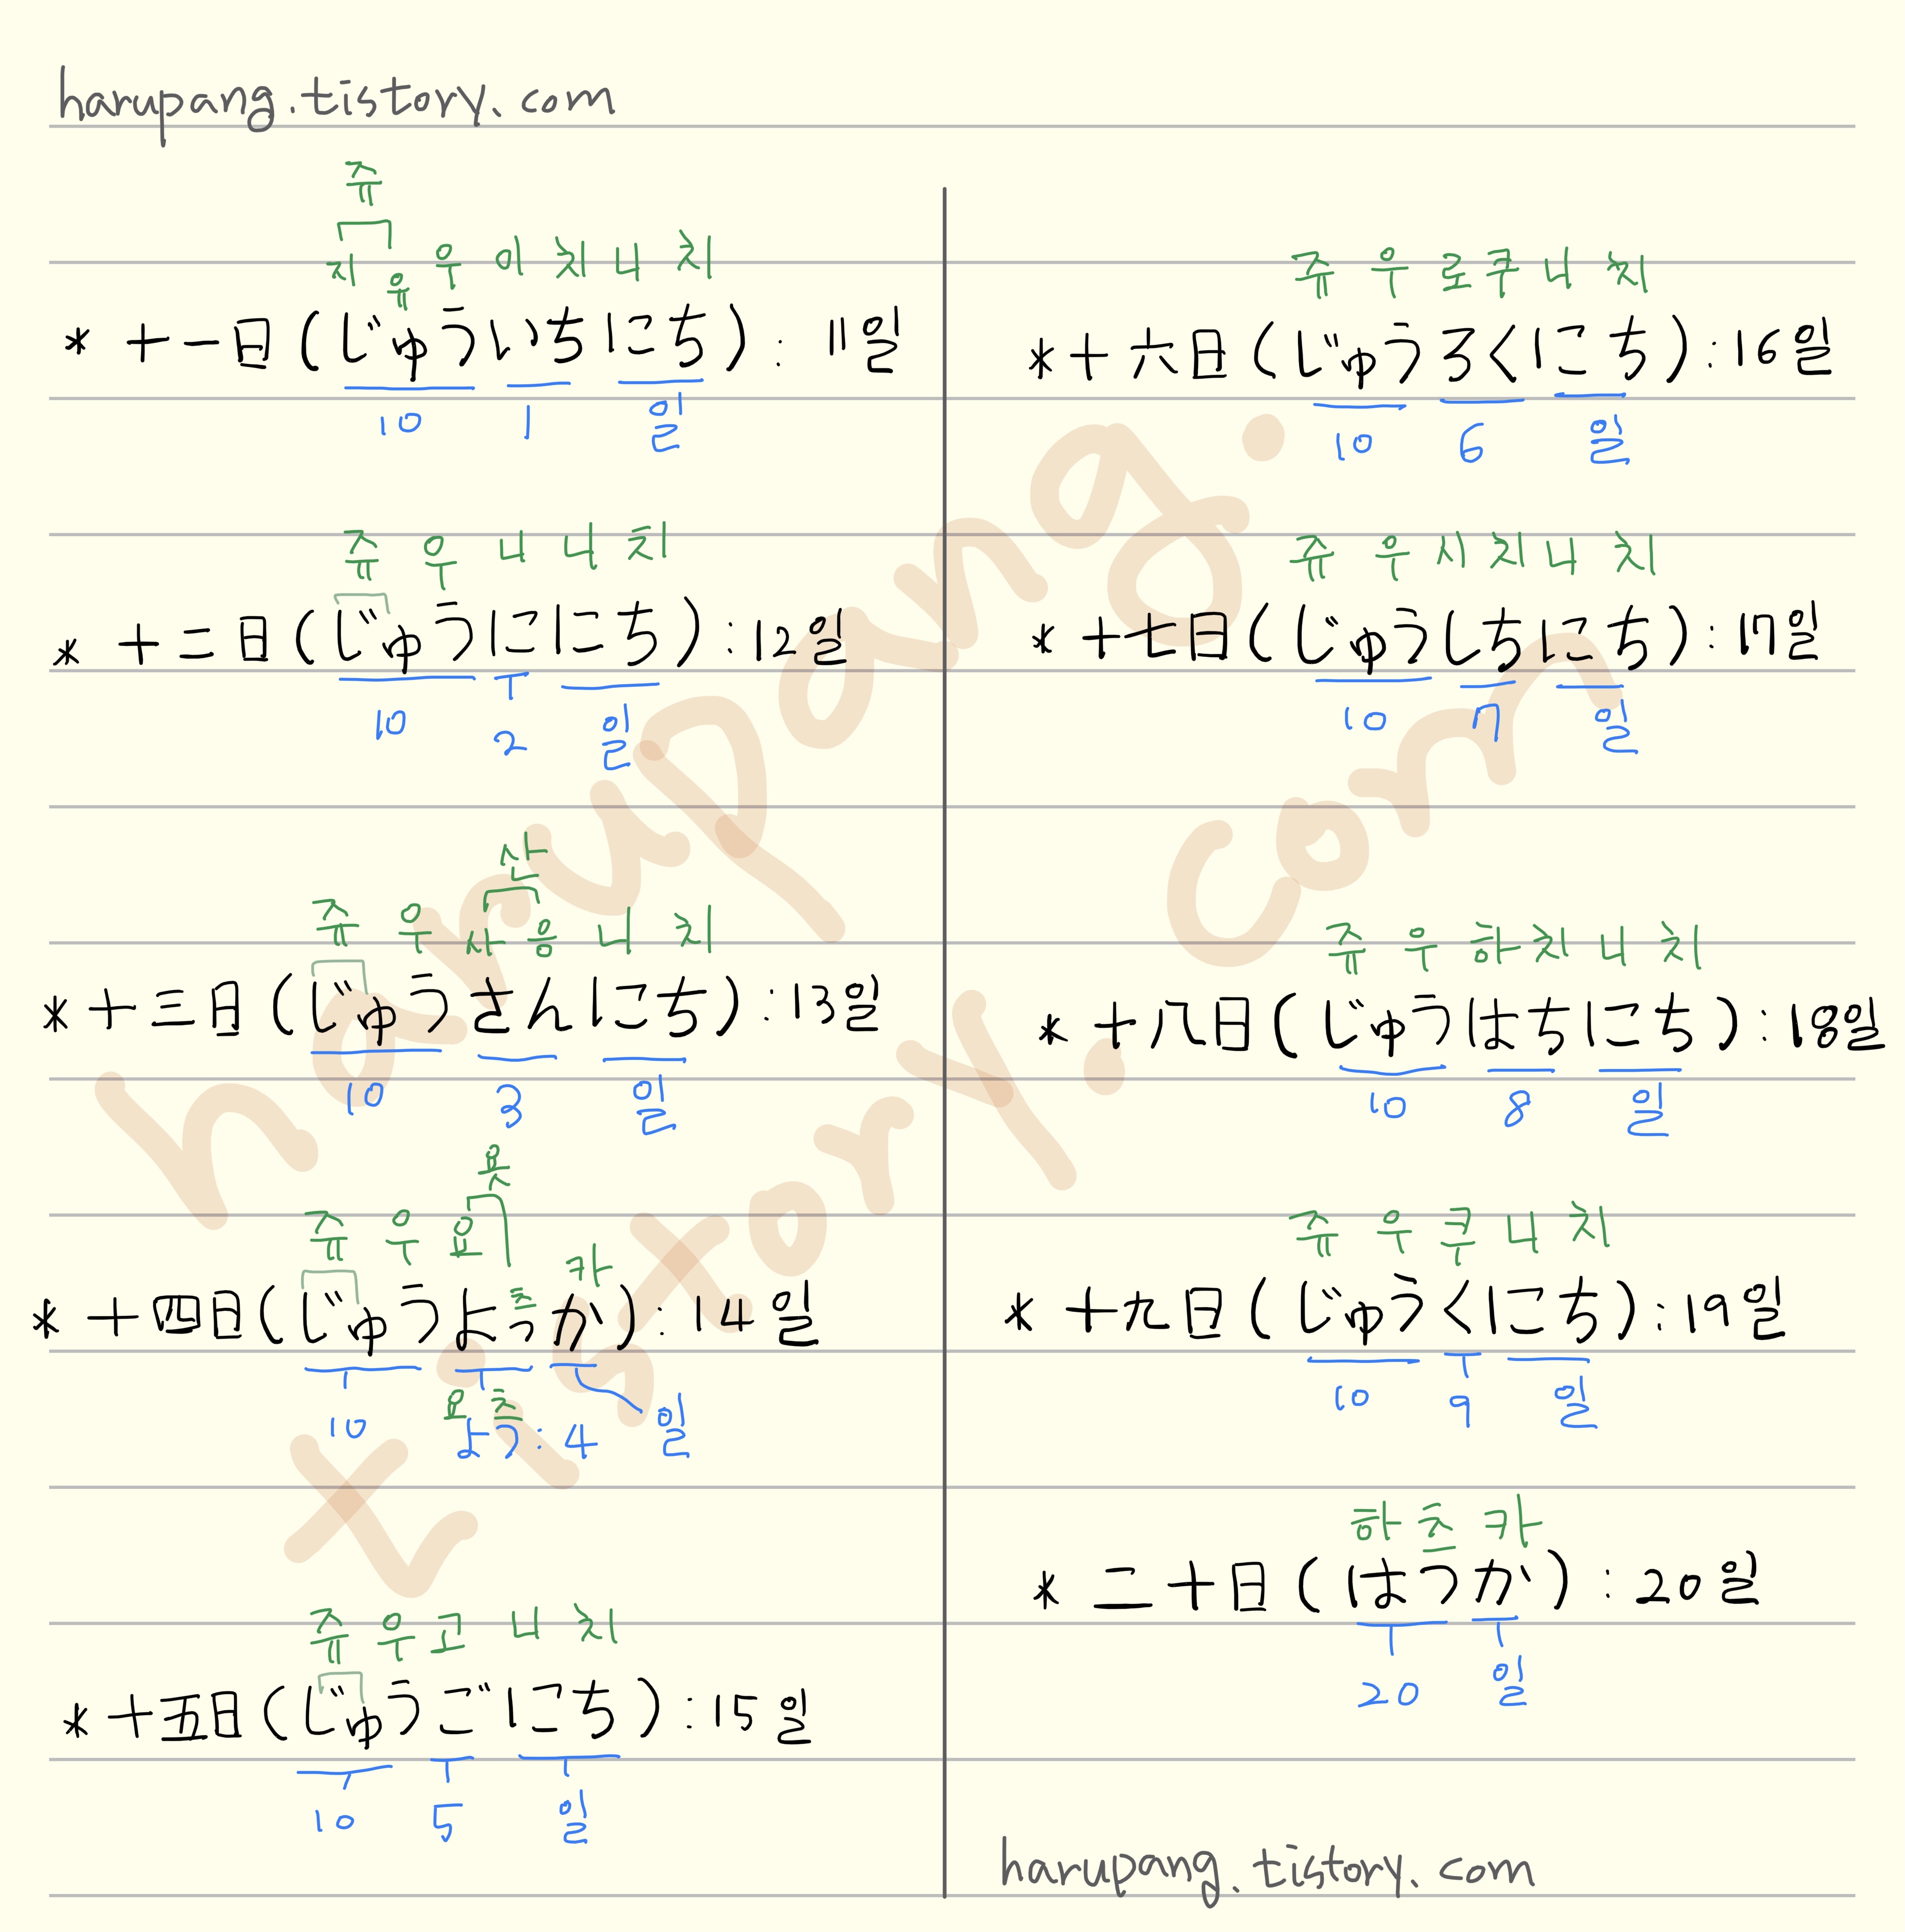 harupang.tistory.com
쥬
지 유 우 이 치 니 치
* 十一日(じゅういちにち): 11일
10 1 일
쥬 우 니 니 치
* 十二日(じゅうににち):12일
10 2 일
산
쥬 우 사 응 니 치
*十三日(じゅうさんにち):13일
10 3 일
욧
쥬 우 요 카
*十四日(じゅうよっか):14일
츠
10 요 츠 일
よつ:4
쥬 우 고 니 치
*十五日(じゅうごにち):15일
10 5 일
쥬 우 로쿠 니 치
*十六日(じゅうろくにち):16일
10 6 일
쥬 우 시 치 니 치
*十七日(じゅうしちにち):17일
10 7 일
쥬 우 하 치 니 치
*十八日(じゅうはちにち):18일
10 8 일
쥬 우 쿠 니 치
*十九日(じゅうくにち):19일
10 9 일
하 츠 카
*二十日(はつか):20일
20 일
harupang.tistory.com
harupang.
tistory.com